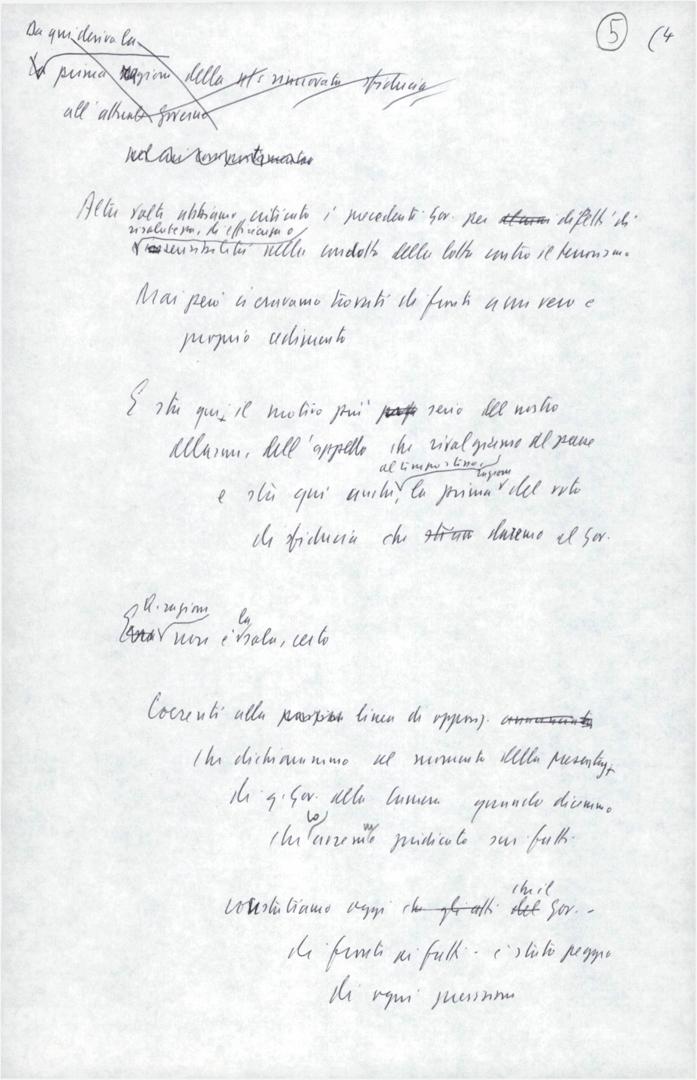 5 (4
Da qui deriva la
La prima ragione della rinnovata sfiducia
all'attuale Governo
Altre volte abbiamo criticato i precedenti Gov. per difetti di
risolutezza, di efficienza o
sensibilità nella condotta della lotta contro il terrorismo
Mai però ci eravamo trovati di fronte a un vero e
proprio cedimento
E sta qui, il motivo più serio del nostro
allarme, dell'appello che rivolgiamo al paese
ragione
e sta qui anche, la prima del voto
di sfiducia che daremo al Gov.
la ragione
E non è la sola, certo
Coerenti alla linea di oppos.
che dichiarammo al momento della presentaz.
di q. Gov. alla Camera quando dicemmo
che lo avremmo giudicato sui fatti
che il
constatiamo oggi che gli atti del Gov. -
di fronte ai fatti - è stato peggio
di ogni previsione